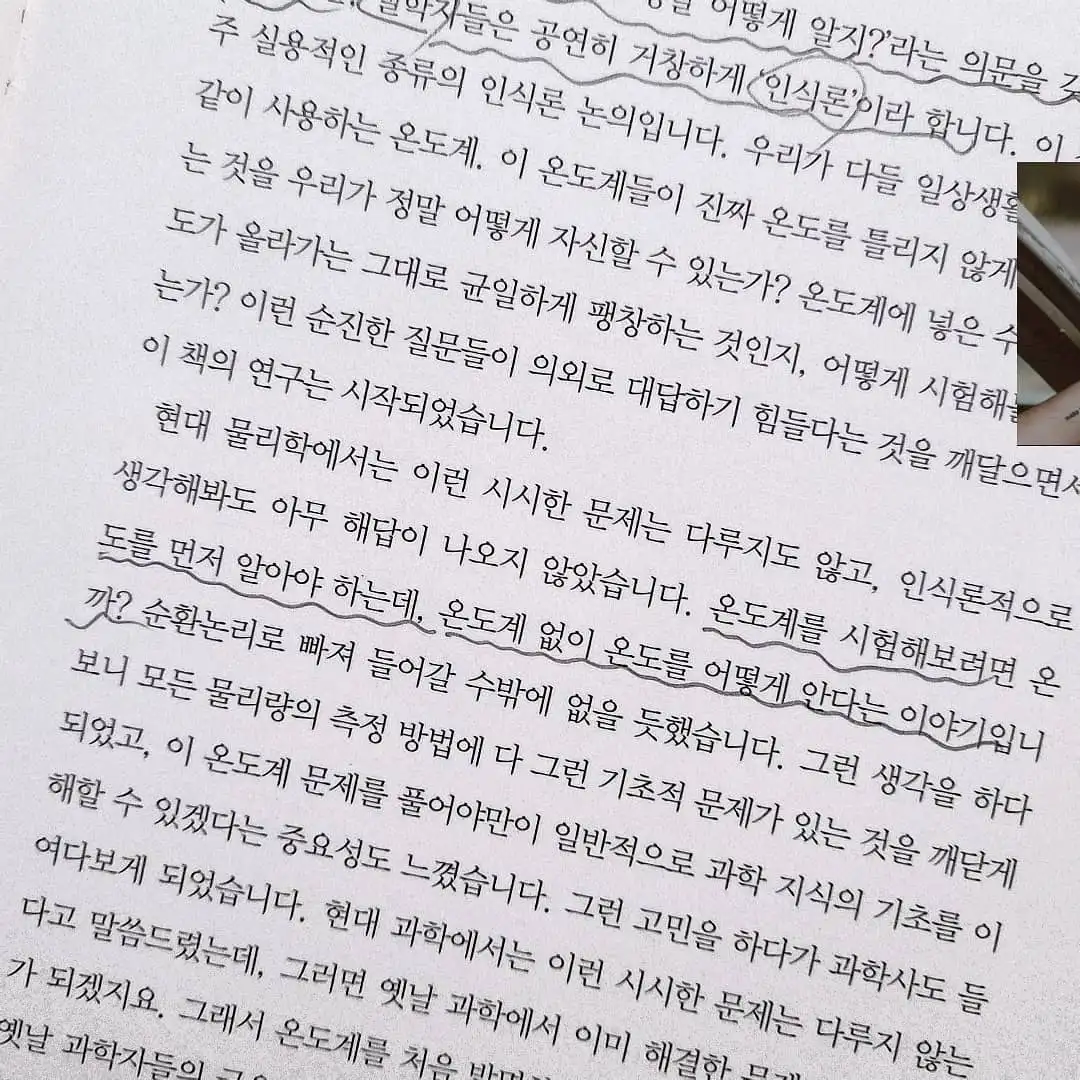 어떻게 알지?'라는 의문을
철학자들은 공연히 거창하게 '인식론'이라 합니다. 이
주 실용적인 종류의 인식론 논의입니다. 우리가 다들 일상생활
같이 사용하는 온도계. 이 온도계들이 진짜 온도를 틀리지 않게
는 것을 우리가 정말 어떻게 자신할 수 있는가? 온도계에 넣은 수
도가 올라가는 그대로 균일하게 팽창하는 것인지, 어떻게 시험해
는가? 이런 순진한 질문들이 의외로 대답하기 힘들다는 것을 깨달으면서
이 책의 연구는 시작되었습니다.
현대 물리학에서는 이런 시시한 문제는 다루지도 않고, 인식론적으로
생각해봐도 아무 해답이 나오지 않았습니다. 온도계를 시험해보려면 온
도를 먼저 알아야 하는데, 온도계 없이 온도를 어떻게 안다는 이야기입니
까? 순환논리로 빠져 들어갈 수밖에 없을 듯했습니다. 그런 생각을 하다
보니 모든 물리량의 측정 방법에 다 그런 기초적 문제가 있는 것을 깨닫게
되었고, 이 온도계 문제를 풀어야만이 일반적으로 과학 지식의 기초를 이
해할 수 있겠다는 중요성도 느꼈습니다. 그런 고민을 하다가 과학사도 들
여다보게 되었습니다. 현대 과학에서는 이런 시시한 문제는 다루지 않는
다고 말씀드렸는데, 그러면 옛날 과학에서 이미 해결한
가 되겠지요. 그래서 온도계를 처음
옛날 과학자들의